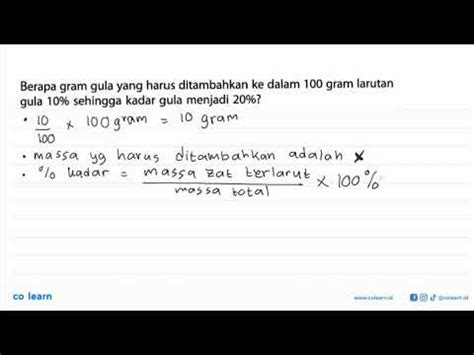 Berapa gram gula yang harus ditambahkan ke dalam 100 gram larutan
gula 10% sehingga kadar gula menjadi 20%?
• 10/100 x 100 gram = 10 gram
• massa yg harus ditambahkan adalah x
• % kadar = massa zat terlarut / massa total x 100%
co learn
www.colearn.id @colearn.id